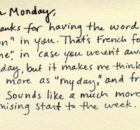 Monday
hanks for having the word
on" in you. That's French fo
e," in case you weren't awar
day, but it makes me think
more as "myday," and fr
Sounds like a much more
mising start to the week.